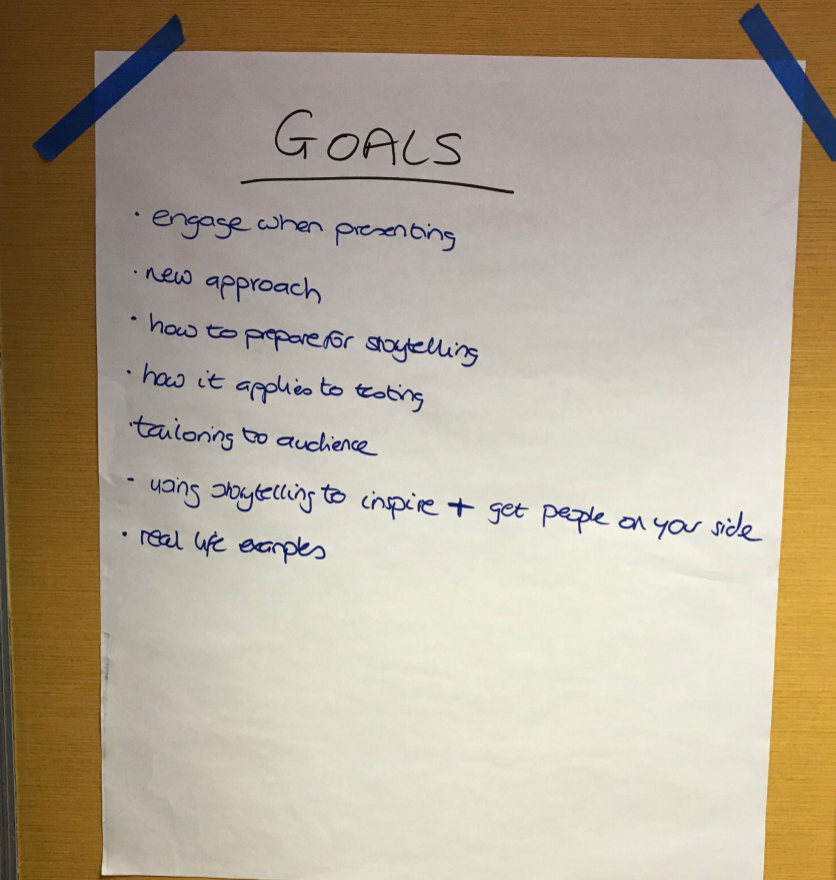 GOALS
· engage when presenting
· new approach
· how to prepare for storytelling
· how it applies to testing
· tailoring to audience
· using storytelling to inspire + get people on your side
· real life examples